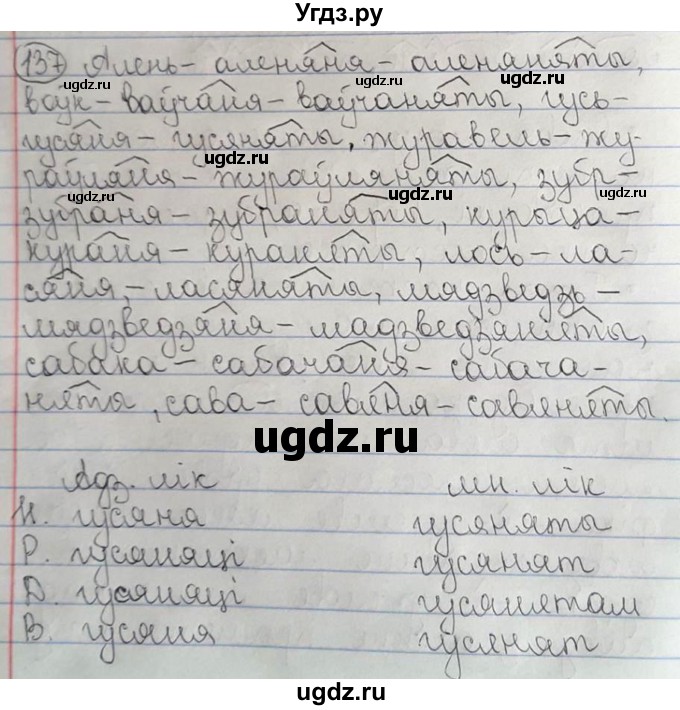 Угдз.ру
137 Алень- аленяня- аленяняты,
воўк- ваўчаня- ваўчаняты, гусь-
гусяня- гусяняты, журавель- жу-
раўляня- жураўляняты, зубр-
зубраня- зубраняты, курыца-
кураня- кураняты, лось- ла-
сяня,- ласяняты, мядзведзь-
мядзведзяня- мядзведзяняты,
сабака- сабачаня- сабача-
нята, сава- савяня- савяняты.
Адз. лік мн. лік
Н. гусяня гусяняты
Р. гусяняці гусянят
Д. гусяняці гусянятам
В. гусяня гусянят
ugdz.ru
ugdz.ru
ugdz.ru
ugdz.ru
ugdz.ru
ugdz.ru
ugdz.ru
ugdz.ru
ugdz.ru